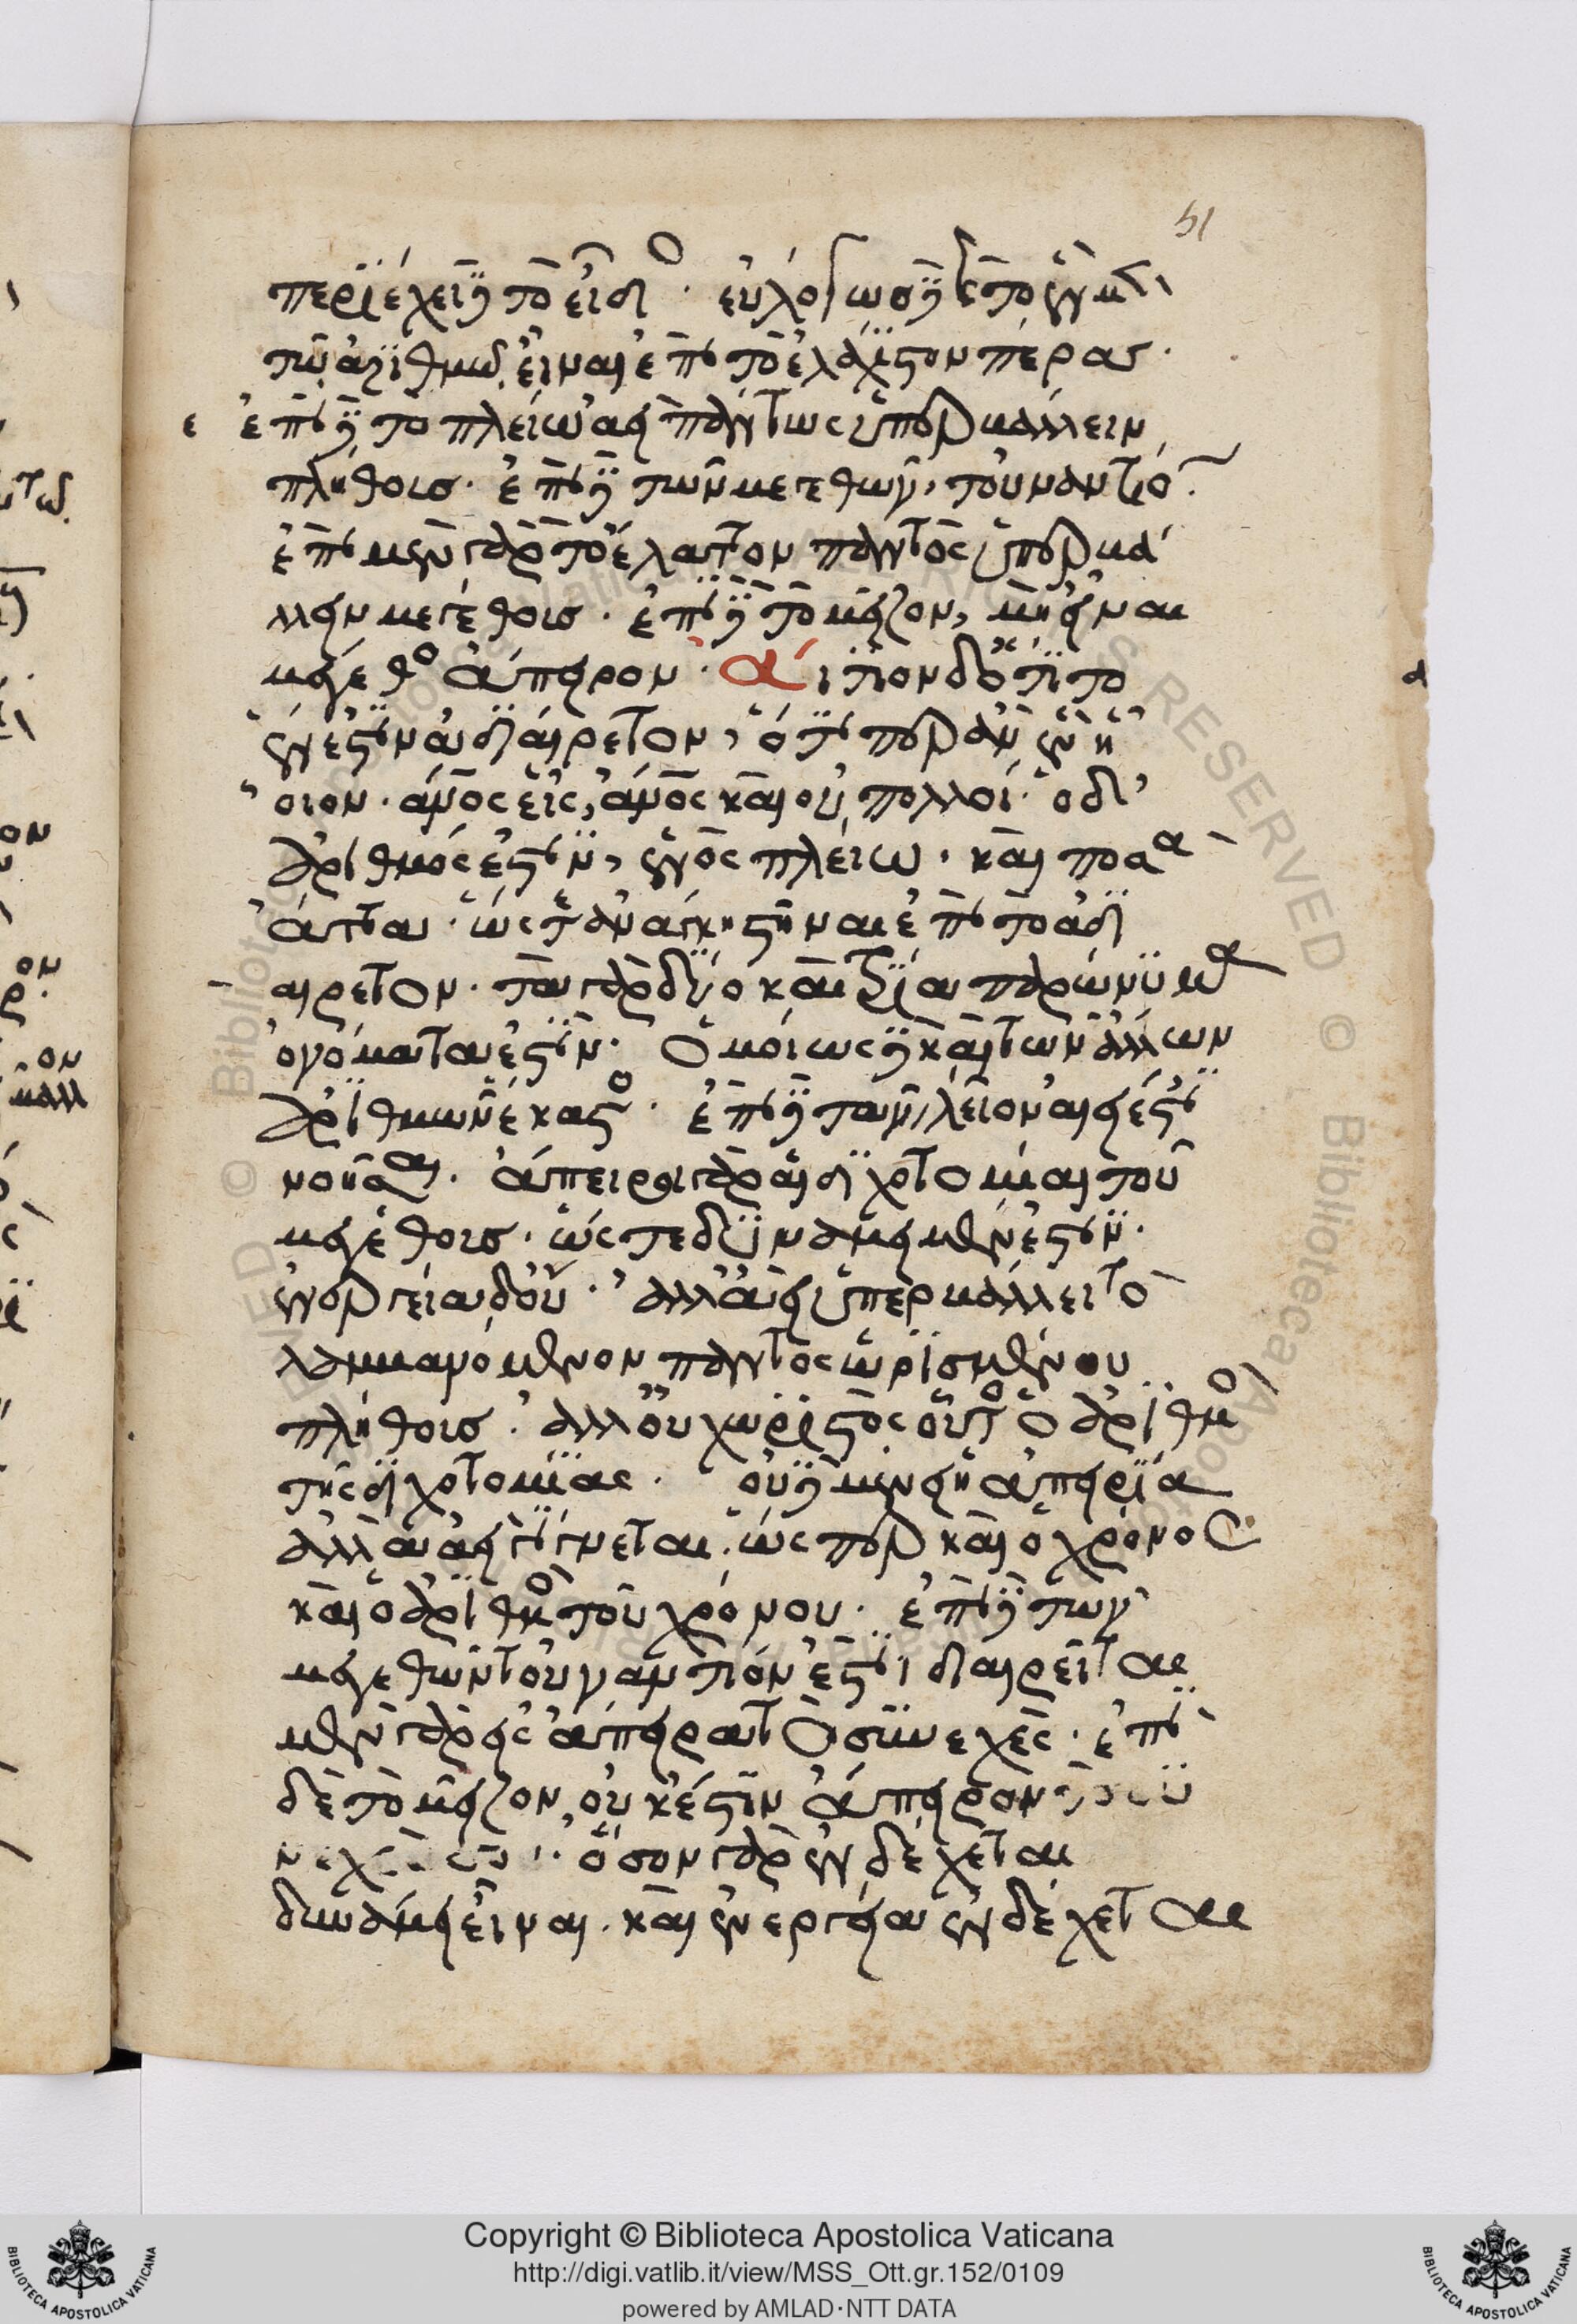 51
περιέχει δὲ τὸ εἶδος. εὐλόγως δὲ καὶ τὸ ἐν μὲν
τῷ ἀριθμῷ εἶναι ἐπὶ τὸ ἐλάχιστον πέρας.
ε ἐπὶ δὲ τὸ πλείω ἀεὶ παντὸς ὑπερβάλλειν
πλήθους. ἐπὶ δὲ τῶν μεγεθῶν, τοὐναντίον.
ἐπὶ μὲν γὰρ τὸ ἔλαττον παντὸς ὑπερβά
λλειν μεγέθους. ἐπὶ δὲ τὸ μεῖζον, μὴ εἶναι
μέγεθος ἄπειρον. αἴτιον δ' ὅτι τὸ
ἕν ἐστιν ἀδιαίρετον, ὅ τι περ ἂν ἓν ᾖ
οἷον. ἄνος εἷς, ἄνος καὶ οὐ πολλοί. ὁ δ'
ἀριθμός ἐστιν, ἑνὸς πλείω. καὶ πόσα
ἄττα. ὥστ' ἀνάγκη στῆναι ἐπὶ τὸ ἀδι
αίρετον. τὰ γὰρ δύο καὶ τρία παρώνυμα
ὀνόματά ἐστιν. ὁμοίως δὲ καὶ τῶν ἄλλων
ἀριθμῶν ἕκαστος. ἐπὶ δὲ τὸ πλεῖον ἀεὶ ἔστι
νοῆσαι. ἄπειροι γὰρ αἱ διχοτομίαι τοῦ
μεγέθους. ὥστε δυνάμει μέν ἐστιν.
ἐνεργείᾳ δ' οὔ. ἀλλ' ἀεὶ ὑπερβάλλει τὸ
λαμβανόμενον παντὸς ὡρισμένου
πλήθους. ἀλλ' οὐ χωριστὸς οὗτος ὁ ἀριθμὸς
τῆς διχοτομίας. οὐδὲ μένει ἡ ἀπειρία
ἀλλὰ ἀεὶ γίγνεται. ὥσπερ καὶ ὁ χρόνος
καὶ ὁ ἀριθμὸς τοῦ χρόνου. ἐπὶ δὲ τῶν
μεγεθῶν τοὐναντίον ἐστι διαιρεῖται
μὲν γὰρ εἰς ἄπειρα τὸ συνεχές. ἐπὶ
δὲ τὸ μεῖζον, οὐκ ἔστιν ἄπειρον
ὅσον γὰρ ἐνδέχεται
δυνάμει εἶναι. καὶ ἐνεργείᾳ ἐνδέχεται
Copyright © Biblioteca Apostolica Vaticana
http://digi.vatlib.it/view/MSS_Ott.gr.152/0109
powered by AMLAD·NTT DATA